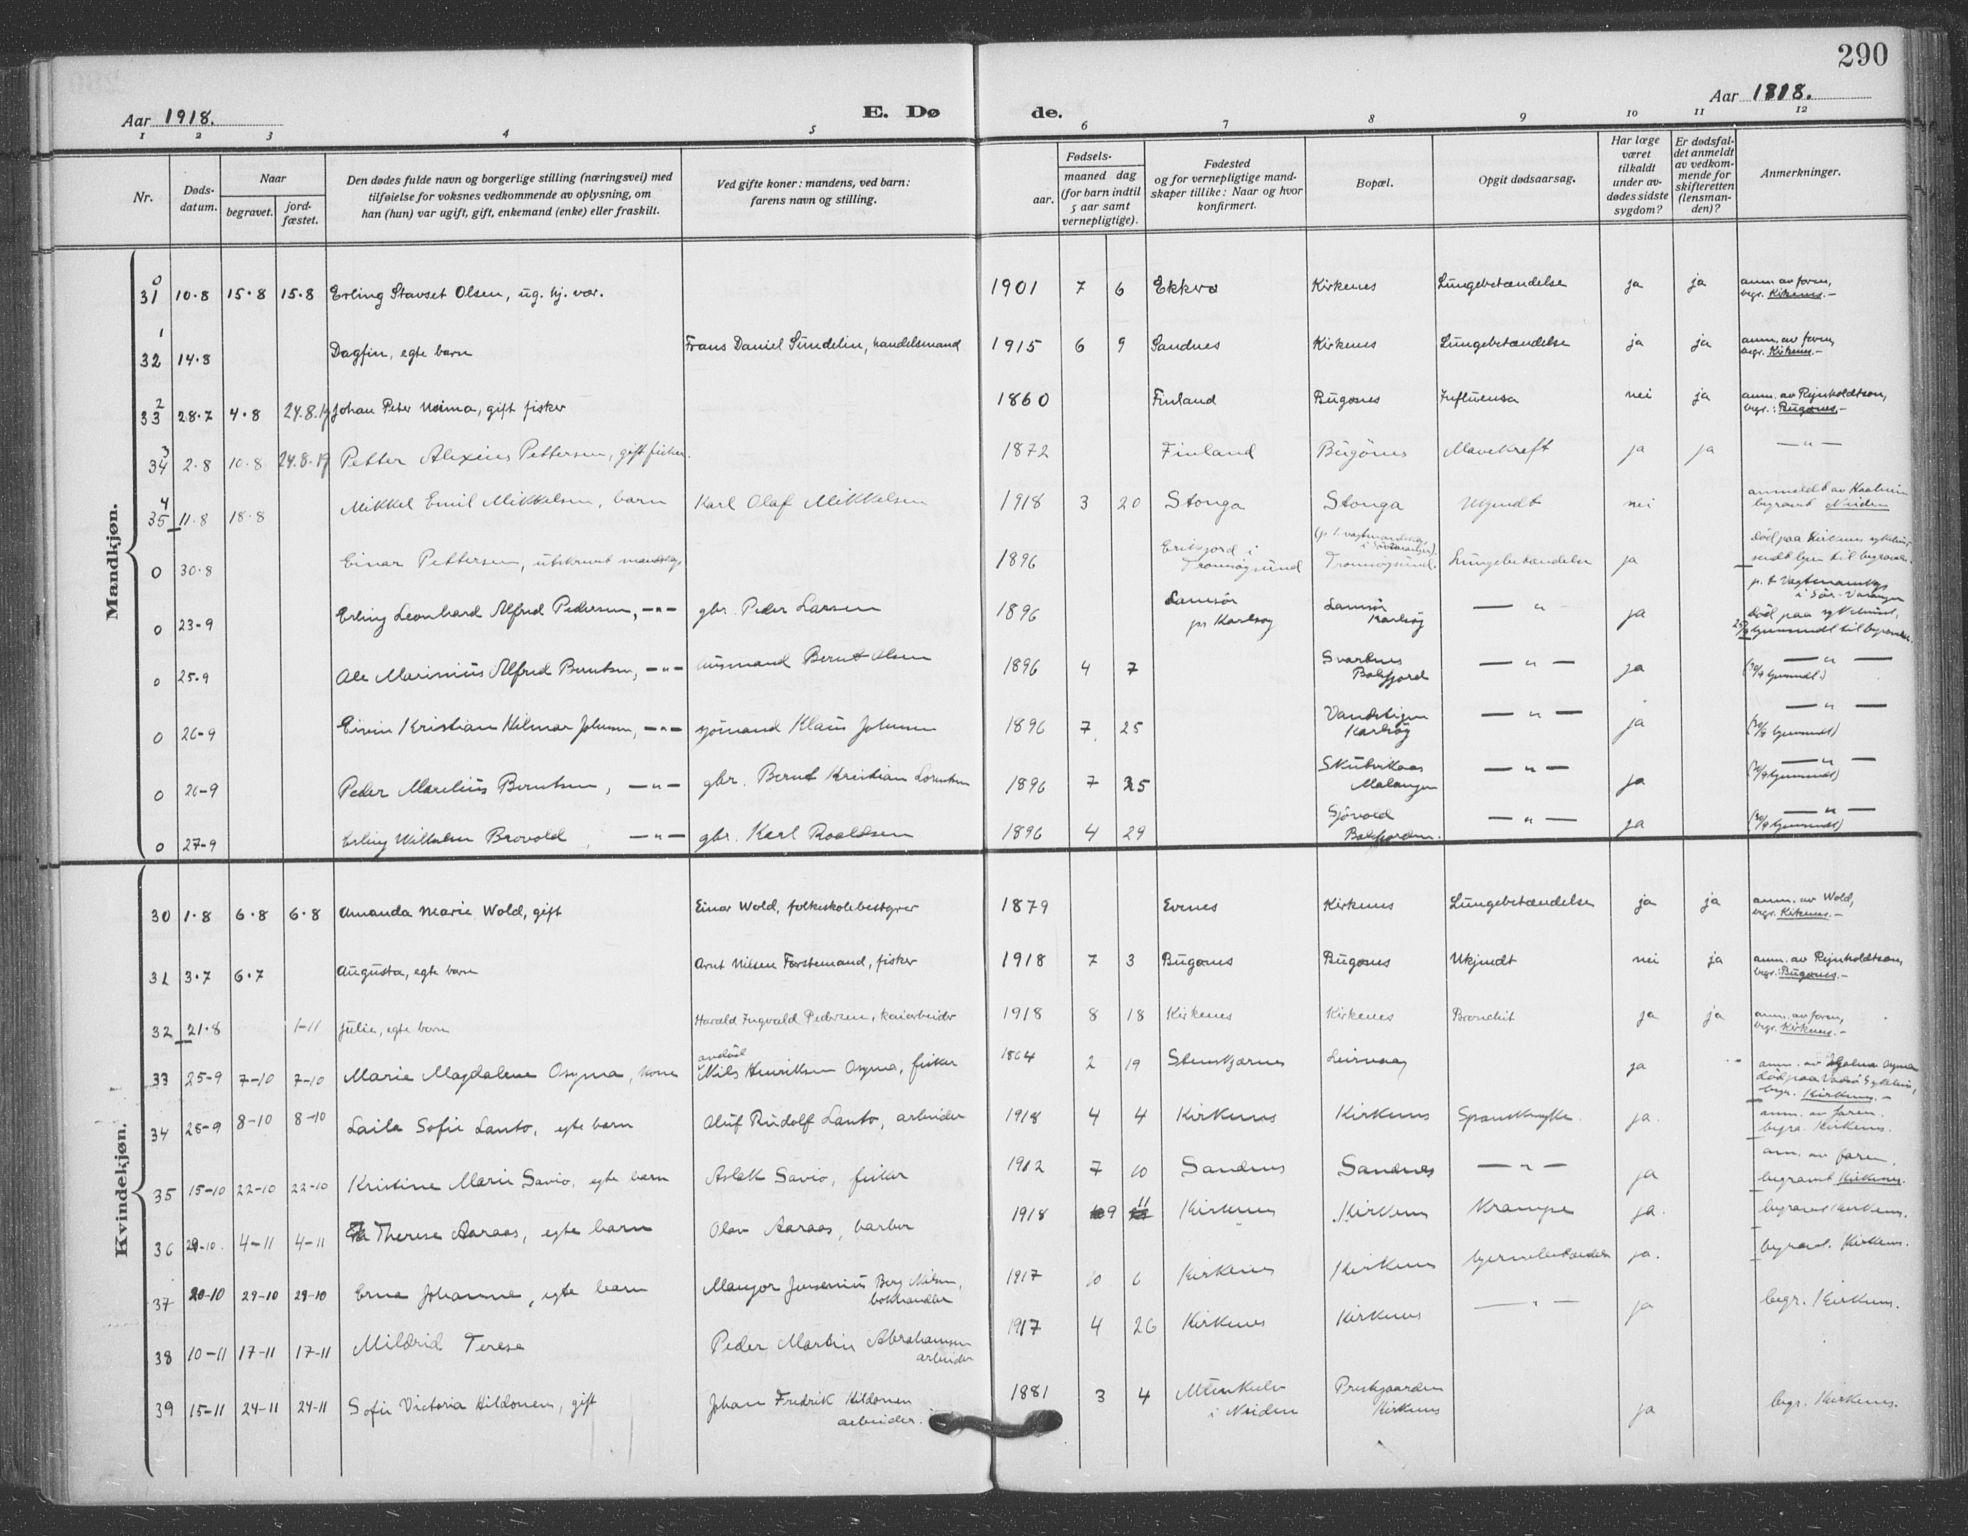 290
Aar 1918.
E. Dø
de.
Aar 1818.
1 2 3 4 5 6 7 8 9 10 11 12
Nr.
Døds-
datum.
Naar
begravet.
jord-
fæstet.
Den dødes fulde navn og borgerlige stilling (næringsvei) med
tilføielse for voksnes vedkommende av oplysning, om
han (hun) var ugift, gift, enkemand (enke) eller fraskilt.
Ved gifte koner: mandens, ved barn:
farens navn og stilling.
Fødsels-
aar.
maaned dag
(for barn indtil
5 aar samt
vernepligtige).
Fødested
og for vernepligtige mand-
skaper tillike: Naar og hvor
konfirmert.
Bopæl.
Opgit dødsaarsag.
Har læge
været
tilkaldt
under av-
dødes sidste
sygdom?
Er dødsfal-
det anmeldt
av vedkom-
mende for
skifteretten
(lensman-
den)?
Anmerkninger.
Mandkjøn.
0
31 10.8 15.8 15.8 Erling Stavset Olsen, ug. hj. vær. 1901 7 6 Ekkerø Kirkenes Lungebetændelse ja ja anm. av faren,
begr. Kirkenes.-
1
32 14.8 Dagfin, egte barn Frans Daniel Sundelin, handelsmand 1915 6 9 Sandnes Kirkenes Lungebetændelse ja ja anm. av faren,
begr. Kirkenes.-
2
33 28.7 4.8 24.8.19 Johan Peter Noima, gift fisker 1860 Finland Bugønes Influensa nei ja anm. av Reynholdtsen,
begr.: Bugønes.-
3
34 2.8 10.8 24.8.19 Petter Alexius Pettersen, gift fisker. 1872 Finland Bugönes Mavekreft ja ja —"—
4
35 11.8 18.8 Mikkel Emil Mikkelsen, barn Karl Olaf Mikkelsen 1918 3 20 Stonga Stonga Ukjendt nei anmeldt av
begravet Neiden
0 30.8 Einar Pettersen, utskrevet mandskap 1896 Eriksjord i
Tromsøysund Tromsøysund. Lungebetændelse ja död paa Kirkenes sykehus,
sendt hjem til begravelse.
0 23-9 Erling Leonhard Alfred Pedersen, —"— gbr. Peder Larsen 1896 Lamsör
pr Karlsøy Lamsör
Karlsøy —"— ja p. t. Vagtmandskap
i Sör-Varanger
död paa sykehuset,
hjemsendt til begravelse.
0 25-9 Ole Marinius Alfred Berntsen, —"— Bernt Olsen 1896 4 7 Svartnes
Balsfjord —"— ja —"—
hjemsendt.)
0 26-9 Kristian Hilmar Johnsen, —"— sjömand Klaus Johnsen 1896 7 25
Karlsöy —"— ja —"—
hjemsendt)
0 26-9 Peder Marelius Berntsen, —"— gbr. Bernt Kristian Lorentsen 1896 7 25
Malangen —"— ja —"—
hjemsendt)
0 27-9 Erling Wilhelm Brovold —"— gbr. Karl Roaldsen 1896 4 29 Sjövold
Balsfjorden. —"— ja —"—
hjemsendt)
Kvindekjøn.
30 1.8 6.8 6.8 Amanda Marie Wold, gift Einar Wold, folkeskolebestyrer 1879 Evenes Kirkenes Lungebetændelse ja ja anm. av Wold,
begr. Kirkenes.-
31 3.7 6.7 Augusta, egte barn Arnt Nilsen Førstemand, fisker 1918 7 3 Bugønes Bugønes Ukjendt nei ja anm. av Reynholdtsen,
begr.: Bugønes.-
32 21.8 1-11 Julie, egte barn Harald Ingvald Pedersen, kaiarbeider 1918 8 18 Kirkenes Kirkenes Bronchit ja ja anm. av faren,
begr. Kirkenes.-
33 25-9 7-10 7-10 Marie Magdalene Osyma, kone Nils Henriksen Osyma, fisker 1864 2 19 Stenskjærnes Leirvaag ja anm. av Osyma
död paa Vadsö Sykehus,
begr. Kirkenes.-
34 25-9 8-10 8-10 Laila Sofie Lanto, egte barn Oluf Rudolf Lanto, arbeider 1918 4 4 Kirkenes Kirkenes Spanskesyke. ja. anm. av faren.
begra. Kirkenes.
35 15-10 22-10 22-10 Kristine Marie Savio, egte barn Aslak Savio, fisker 1912 7 10 Sandnes Sandnes —"— ja am. av faren.
begravet Kirkenes.
36 4-11 4-11 Therese Aaraas, egte barn Olav Aaraas, barber 1918 9 11 Kirkenes Kirkenes Krampe ja. begravet Kirkenes.
37 20-10 29-10 29-10 Erna Johanne, egte barn Mangor Jensenius Berg Nilsen,
bokhandler 1917 10 6 Kirkenes Kirkenes hjernebetændelse ja. begravet. Kirkenes.
38 10-11 17-11 17-11 Mildrid Terese Peder Martin Abrahamsen
arbeider 1917 4 26 Kirkenes Kirkenes —"— ja begr. Kirkenes.
39 15-11 24-11 24-11 Sofie Victoria Hildonen, gift Johan Fredrik Hildonen
arbeider. 1881 3 4 Munkelv
i Neiden Prestgaarden
Kirkenes ja begr. Kirkenes.